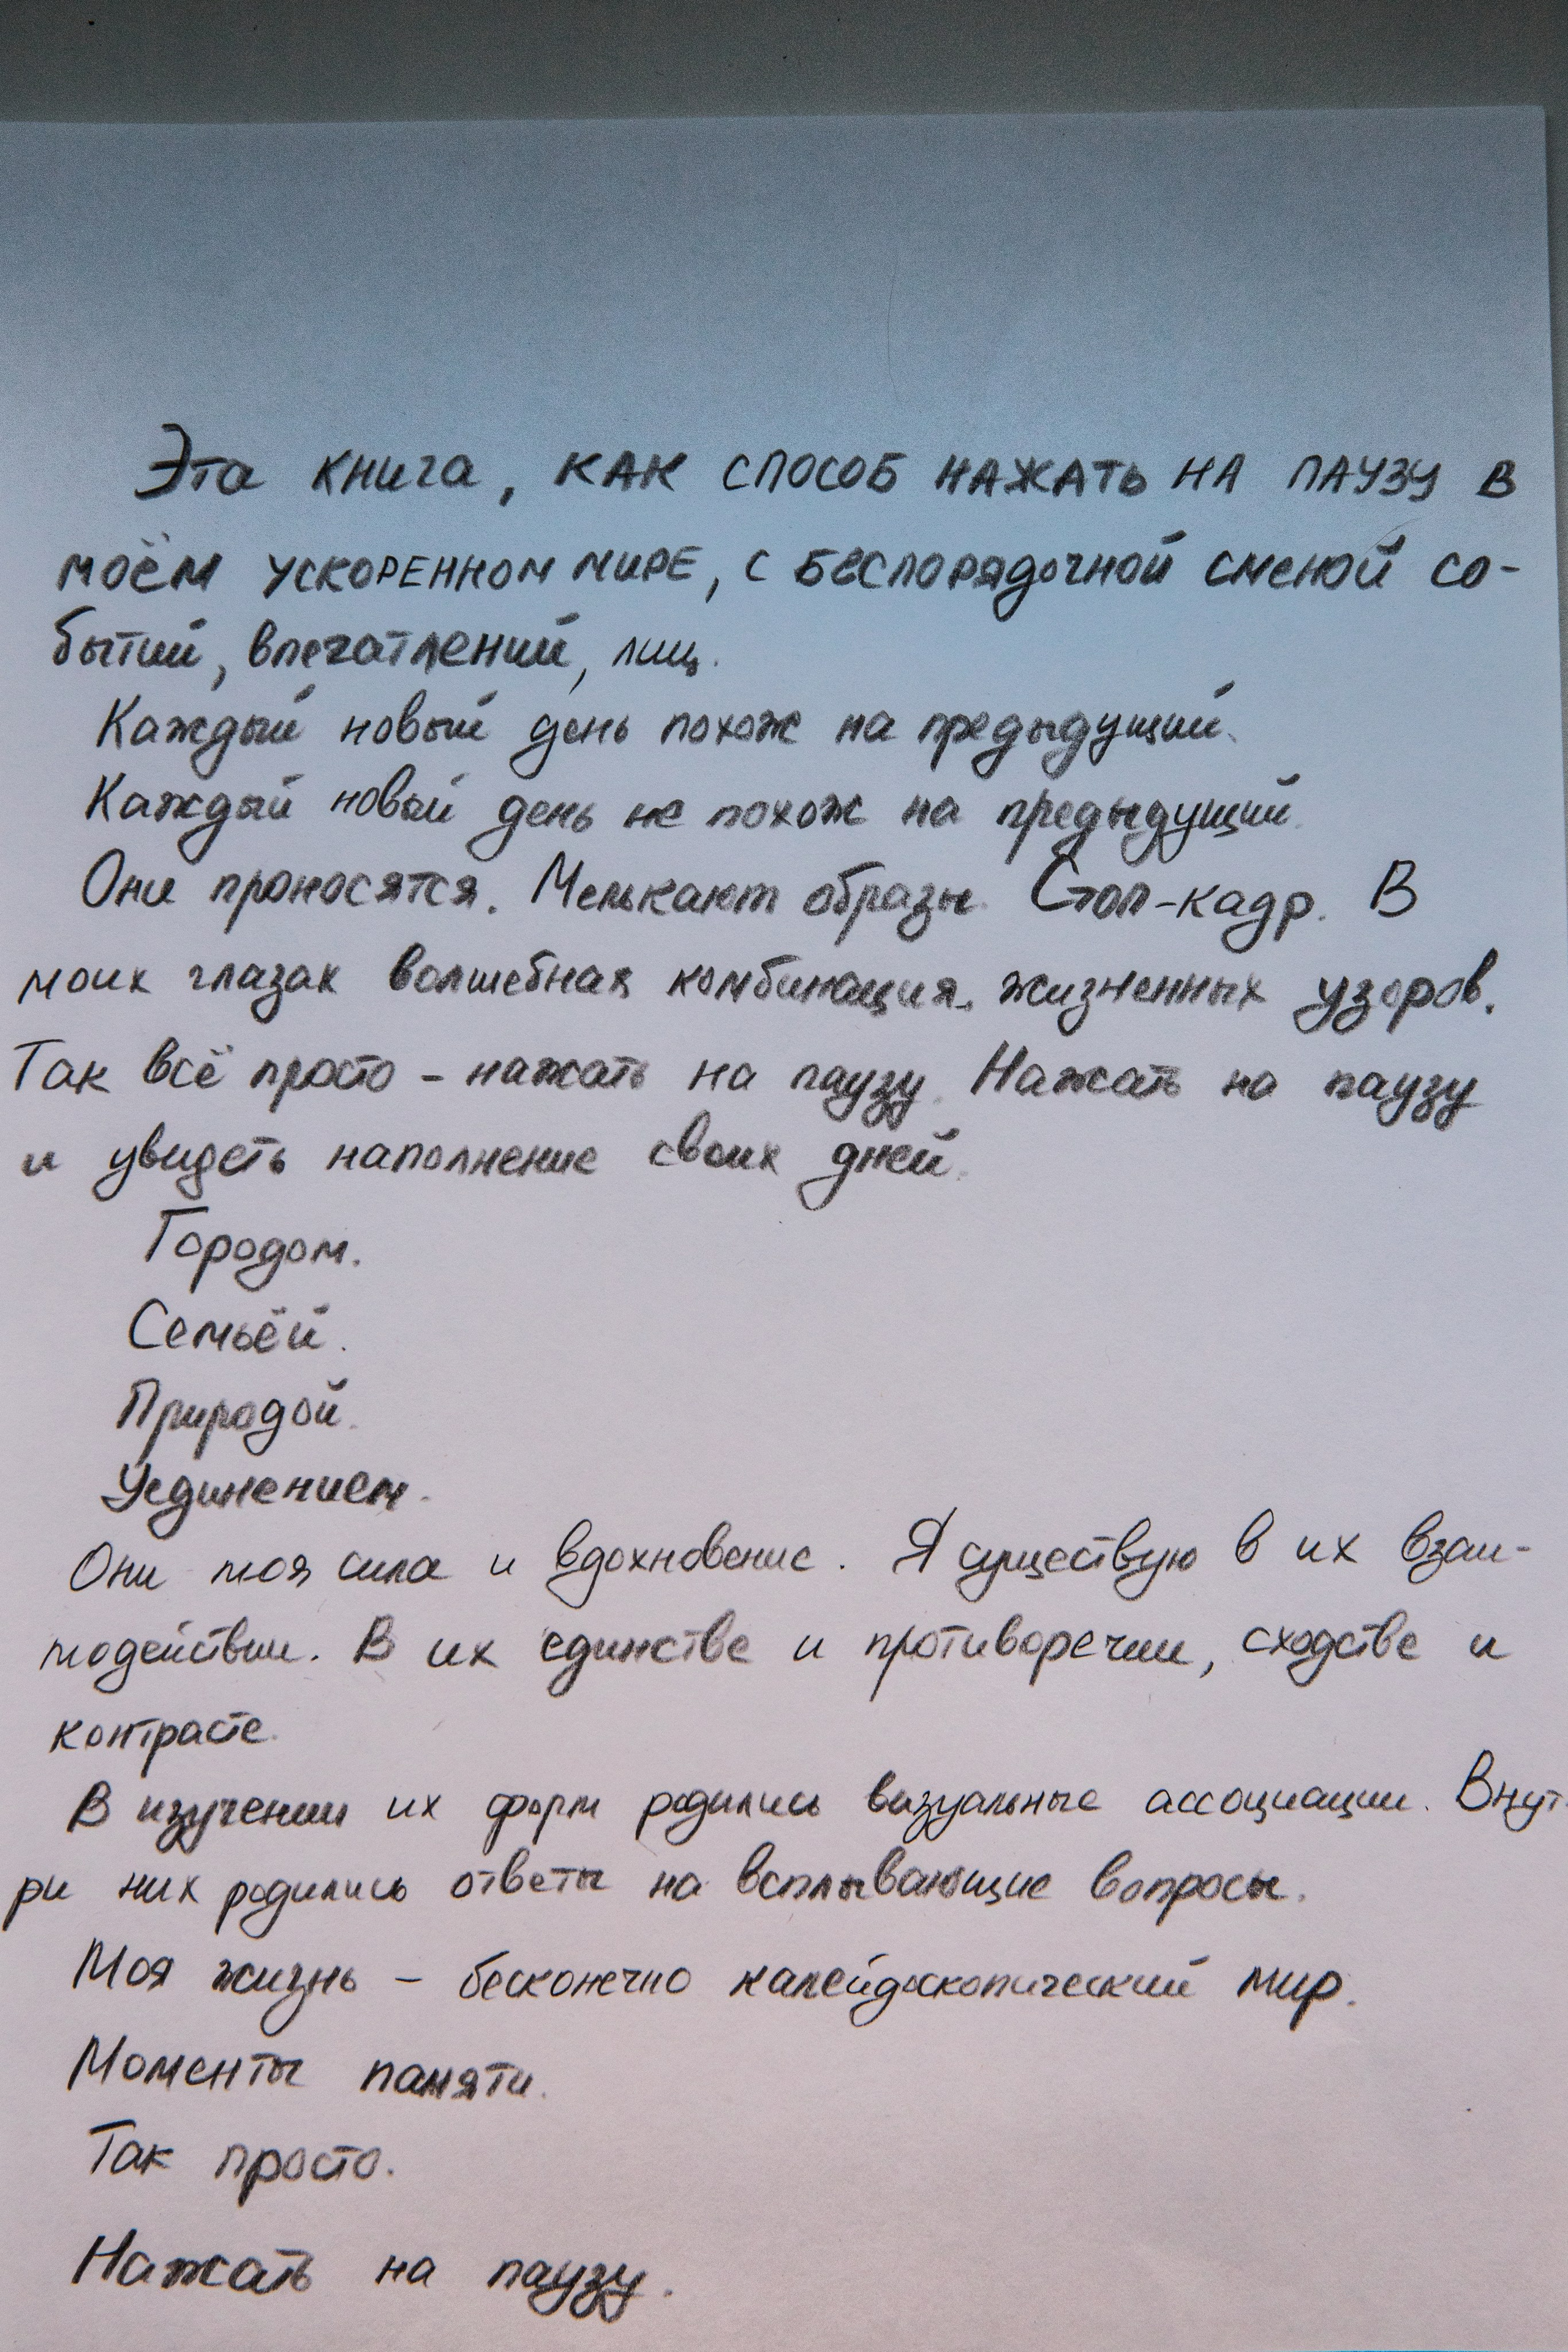 Эта книга, КАК СПОСОБ НАЖАТЬ НА ПАУЗУ В
МОЁМ УСКОРЕННОМ МИРЕ, С БЕСПОРЯДОЧНОЙ СМЕНОЙ СО-
бытий, впечатлений, лиц.
Каждый новый день похож на предыдущий.
Каждый новый день не похож на предыдущий.
Они проносятся. Мелькают образы. Стоп-кадр. В
моих глазах волшебная комбинация жизненных узоров.
Так всё просто - нажать на паузу. Нажать на паузу
и увидеть наполнение своих дней.
Городом.
Семьёй.
Природой.
Уединением.
Они моя сила и вдохновение. Я существую в их взаи-
модействии. В их единстве и противоречии, сходстве и
контрасте.
В изучении их форм родились визуальные ассоциации. Внут-
ри них родились ответы на всплывающие вопросы.
Моя жизнь – бесконечно калейдоскопический мир.
Моменты памяти.
Так просто.
Нажать на паузу.